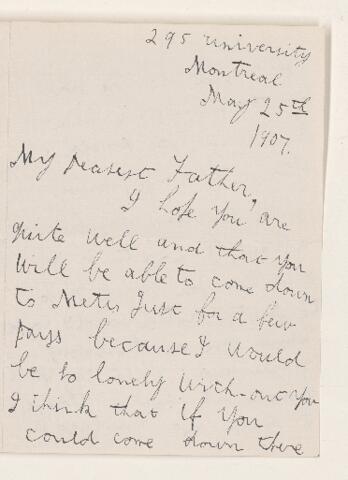 295 University
Montreal
May 25th
1907.
My Dearest Father,
I hope you are
quite well and that you
will be able to come down
to Metis Just for a few
Days because I would
be so lonely with-out you
I think that if you
could come down there